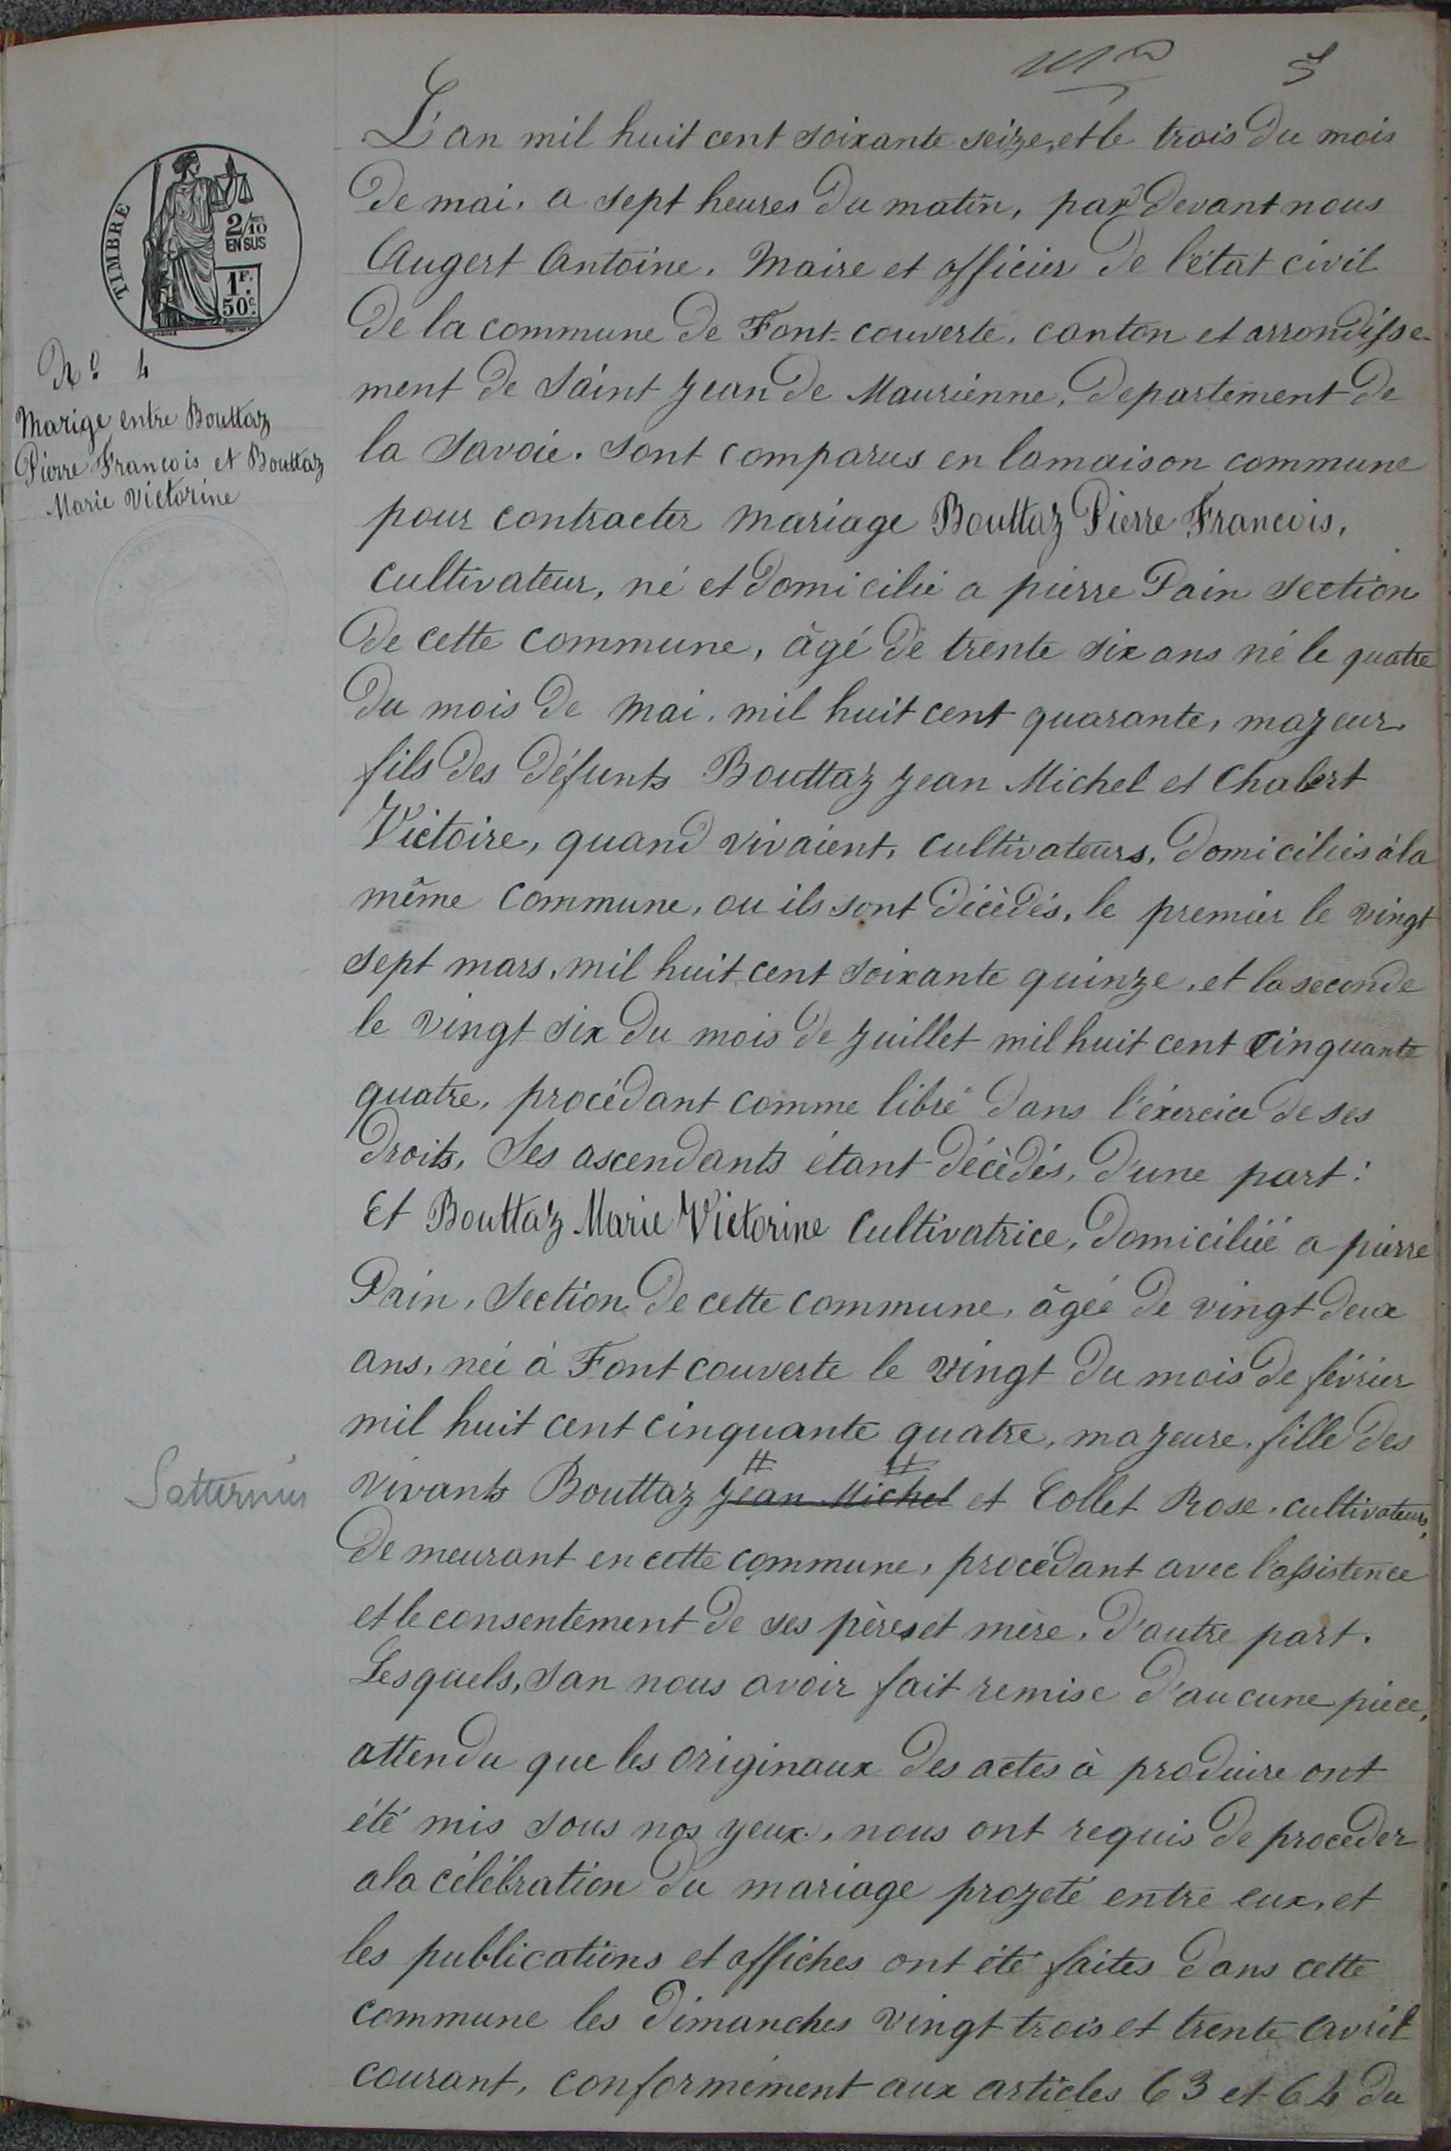 5
TIMBRE
2/10
EN SUS
1F.
50c.
No 4
Marige entre Bouttaz
Pierre Francois et Bouttaz
Marie Victorine
L'an mil huit cent soixante seize, et le trois du mois
de mai, a sept heures du matin, par devant nous
Augert Antoine, Maire et officier de l'état civil
de la commune de Font-couverte, canton et arrondisse-
ment de Saint Jean de Maurienne, Departement de
la Savoie. sont comparus en la maison commune
pour contracter mariage Bouttaz Pierre Francois,
cultivateur, né et domicilié a pierre Pain section
de cette commune, âgé de trente six ans né le quatre
du mois de mai, mil huit cent quarante, majeur
fils des défunts Bouttaz Jean Michel et Chabert
Victoire, quand vivaient, cultivateurs, domiciliés à la
même commune, ou ils sont décèdés, le premier le vingt
sept mars, mil huit cent soixante quinze, et la seconde
le vingt six du mois de juillet mil huit cent cinquante
quatre, procédant comme libré dans l'éxercice de ses
droits, Ses ascendants étant décèdés, d'une part:
Et Bouttaz Marie Victorine cultivatrice, domiciliéé a pierre
Pain, Section de cette commune, âgée de vingt deux
ans, née à Font couverte le vingt du mois de février
mil huit cent cinquante quatre, majeure, fille des
vivants Bouttaz Jean Michel et Collet Rose, cultivateurs,
Satturnin
demeurant en cette commune, procédant avec l'assistence
et le consentement de ses pères et mère, d'autre part.
Lesquels, san nous avoir fait remise d'aucune pièce,
attendu que les originaux des actes à produire ont
été mis sous nos yeux, nous ont requis de proceder
a la célébration du mariage projeté entre eux, et
les publications et affiches ont été faites dans cette
commune les dimanches vingt trois et trente avril
courant, conformément aux articles 63 et 64 du